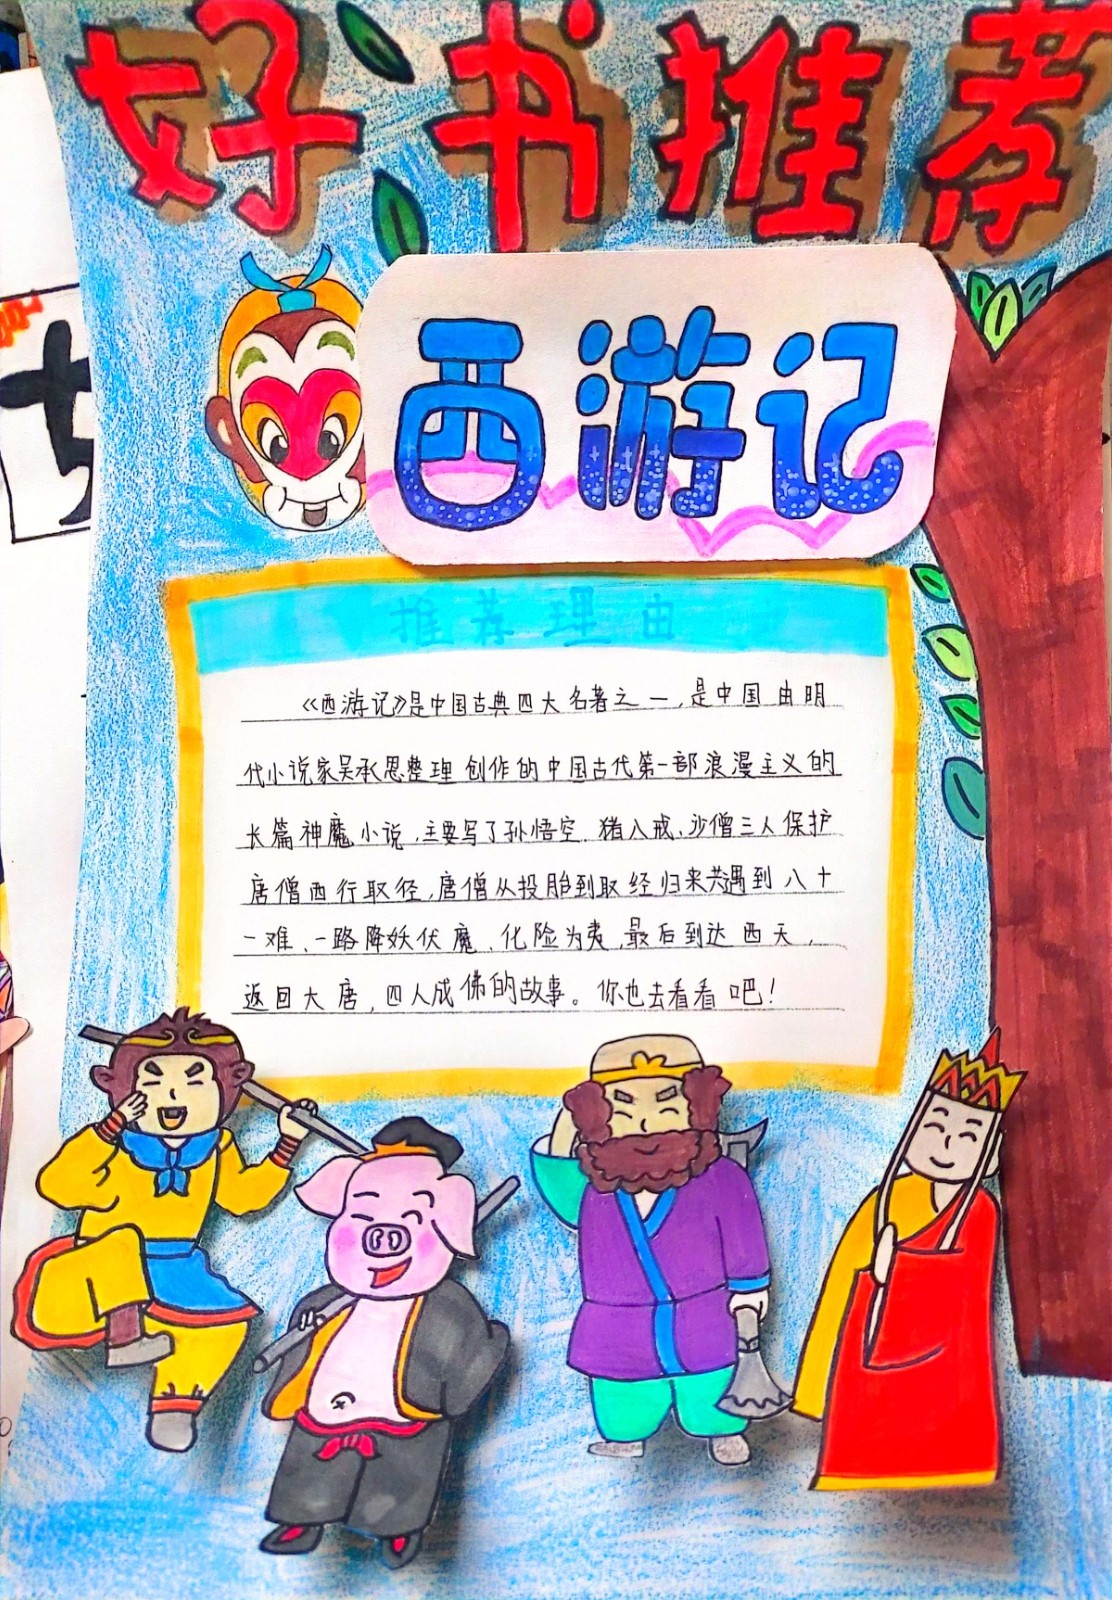 好书推荐
西游记
推荐理由
《西游记》是中国古典四大名著之一,是中国由明
代小说家吴承思整理创作的中国古代第一部浪漫主义的
长篇神魔小说,主要写了孙悟空.猪八戒、沙僧三人保护
唐僧西行取径,唐僧从投胎到取经归来共遇到八十
一难、一路降妖伏魔、化险为夷,最后到达西天,
返回大唐,四人成佛的故事。你也去看看吧!